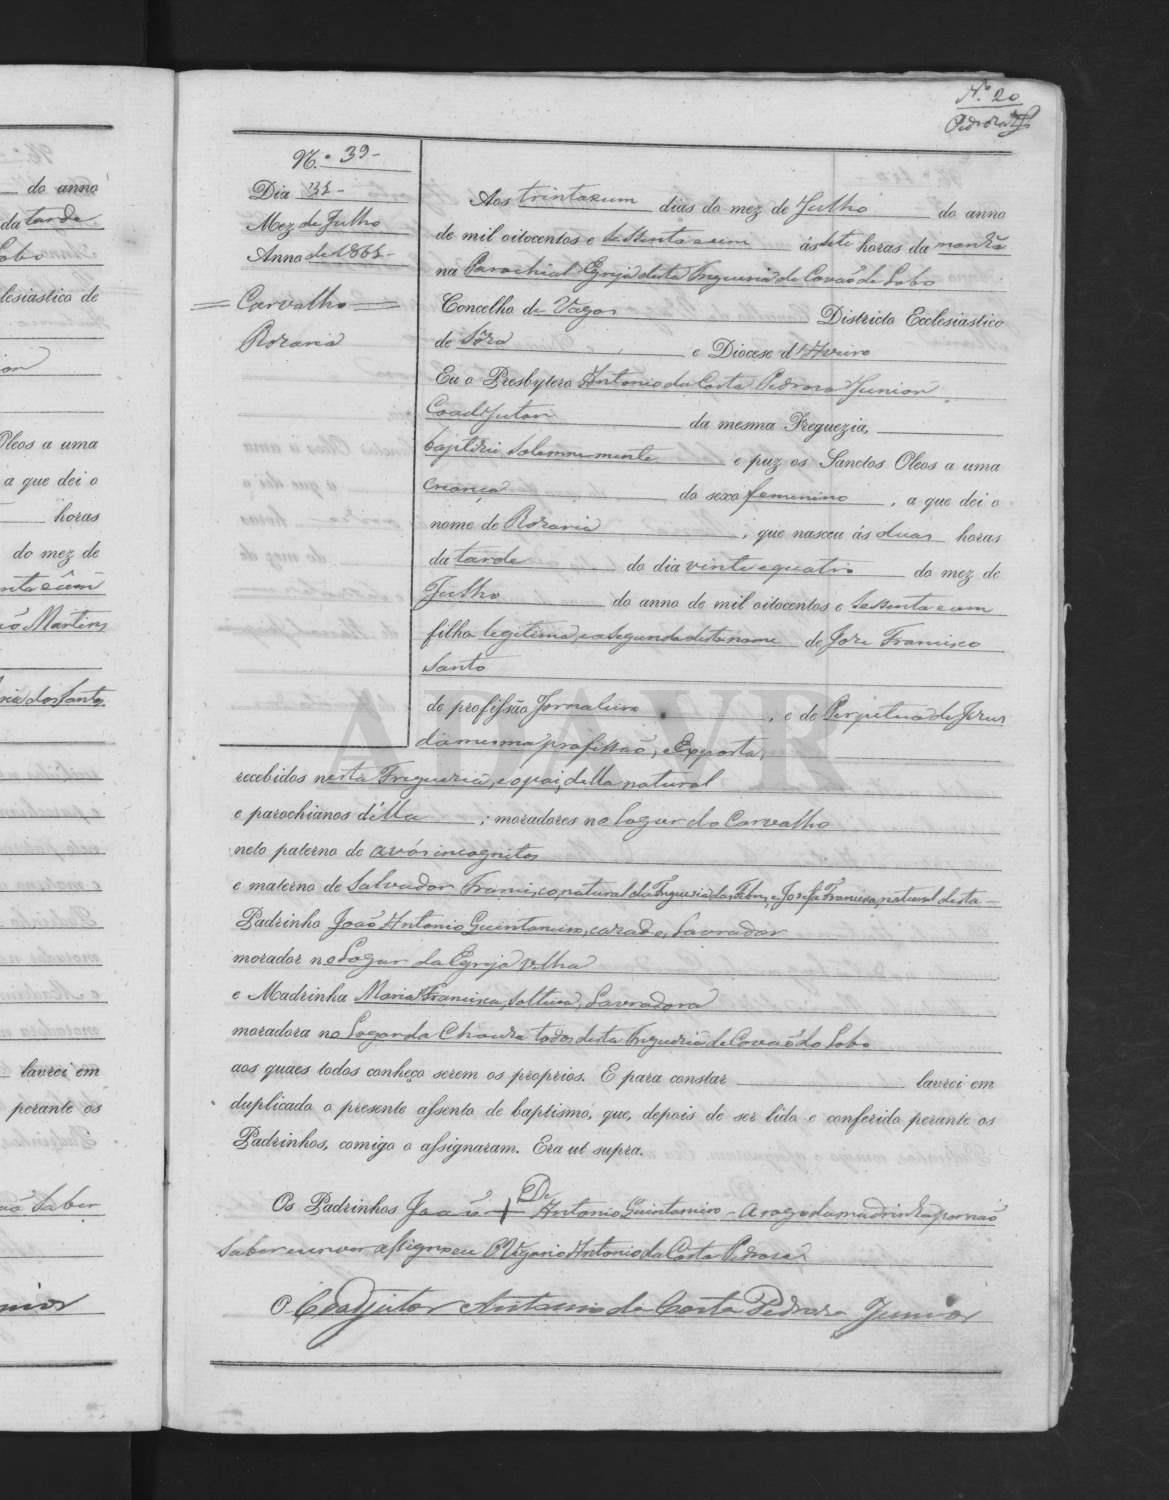 N.º 20
Pedroza Jr
N.º 39-
Dia 31-
Mez de Julho
Anno de 1861-
Carvalho
Rozaria
Aos trinta e um dias do mez de Julho do anno
de mil oitocentos e sessenta e um ás sete horas da manhã
na Parochial Egreja desta Freguezia de Covaõ do Lobo
Concelho de Vagos Districto Ecclesiastico
de Sôza e Diocese d'Aveiro
Eu o Presbytero Antonio da Costa Pedroza Junior
Coadjutor da mesma Freguezia,
baptizei solemnemente e puz os Sanctos Oleos a uma
criança do sexo femenino, a que dei o
nome de Rozaria, que nasceu ás duas horas
da tarde do dia vinte e quatro do mez de
Julho do anno de mil oitocentos e sessenta e um
filha legitima, e a segunda deste nome de Joze Francisco
Santo
de profissão Jornaleiro, e de Perpetua de Jezus
da mesma profissaõ, e Exposta,
recebidos nesta Freguezia, e o pai, della natural
e parochianos d'élla; moradores no Logar do Carvalho
neto paterno de avós incognitos
e materno de Salvador Francisco, natural da Freguezia de Febres, e Josefa Francisca, natural desta -
Padrinho Joaõ Antonio Quintaneiro, cazado, Lavrador
morador no Logar da Egreja velha
e Madrinha Maria Francisca, solteira, Lavradora
moradora no Logar da Choura todos desta Freguezia de Covaõ do Lobo
aos quaes todos conheço serem os proprios. E para constar lavrei em
duplicado o presente assento de baptismo, que, depois de ser lido e conferido perante os
Padrinhos, comigo o assignaram. Era ut supra.
De
Os Padrinhos Joaõ + Antonio Quintaneiro - A rogo da madrinha por naõ
saber escrever assignou eu O Vigario Antonio da Costa Pedroza
O Coadjutor Antonio da Costa Pedroza Junior
ADAVR
do anno
da tarde
Lobo
lesiastico de
Oleos a uma
a que dei o
horas
do mez de
nta e um
Martins
dos Santos
lavrei em
perante os
naõ Saber
nior